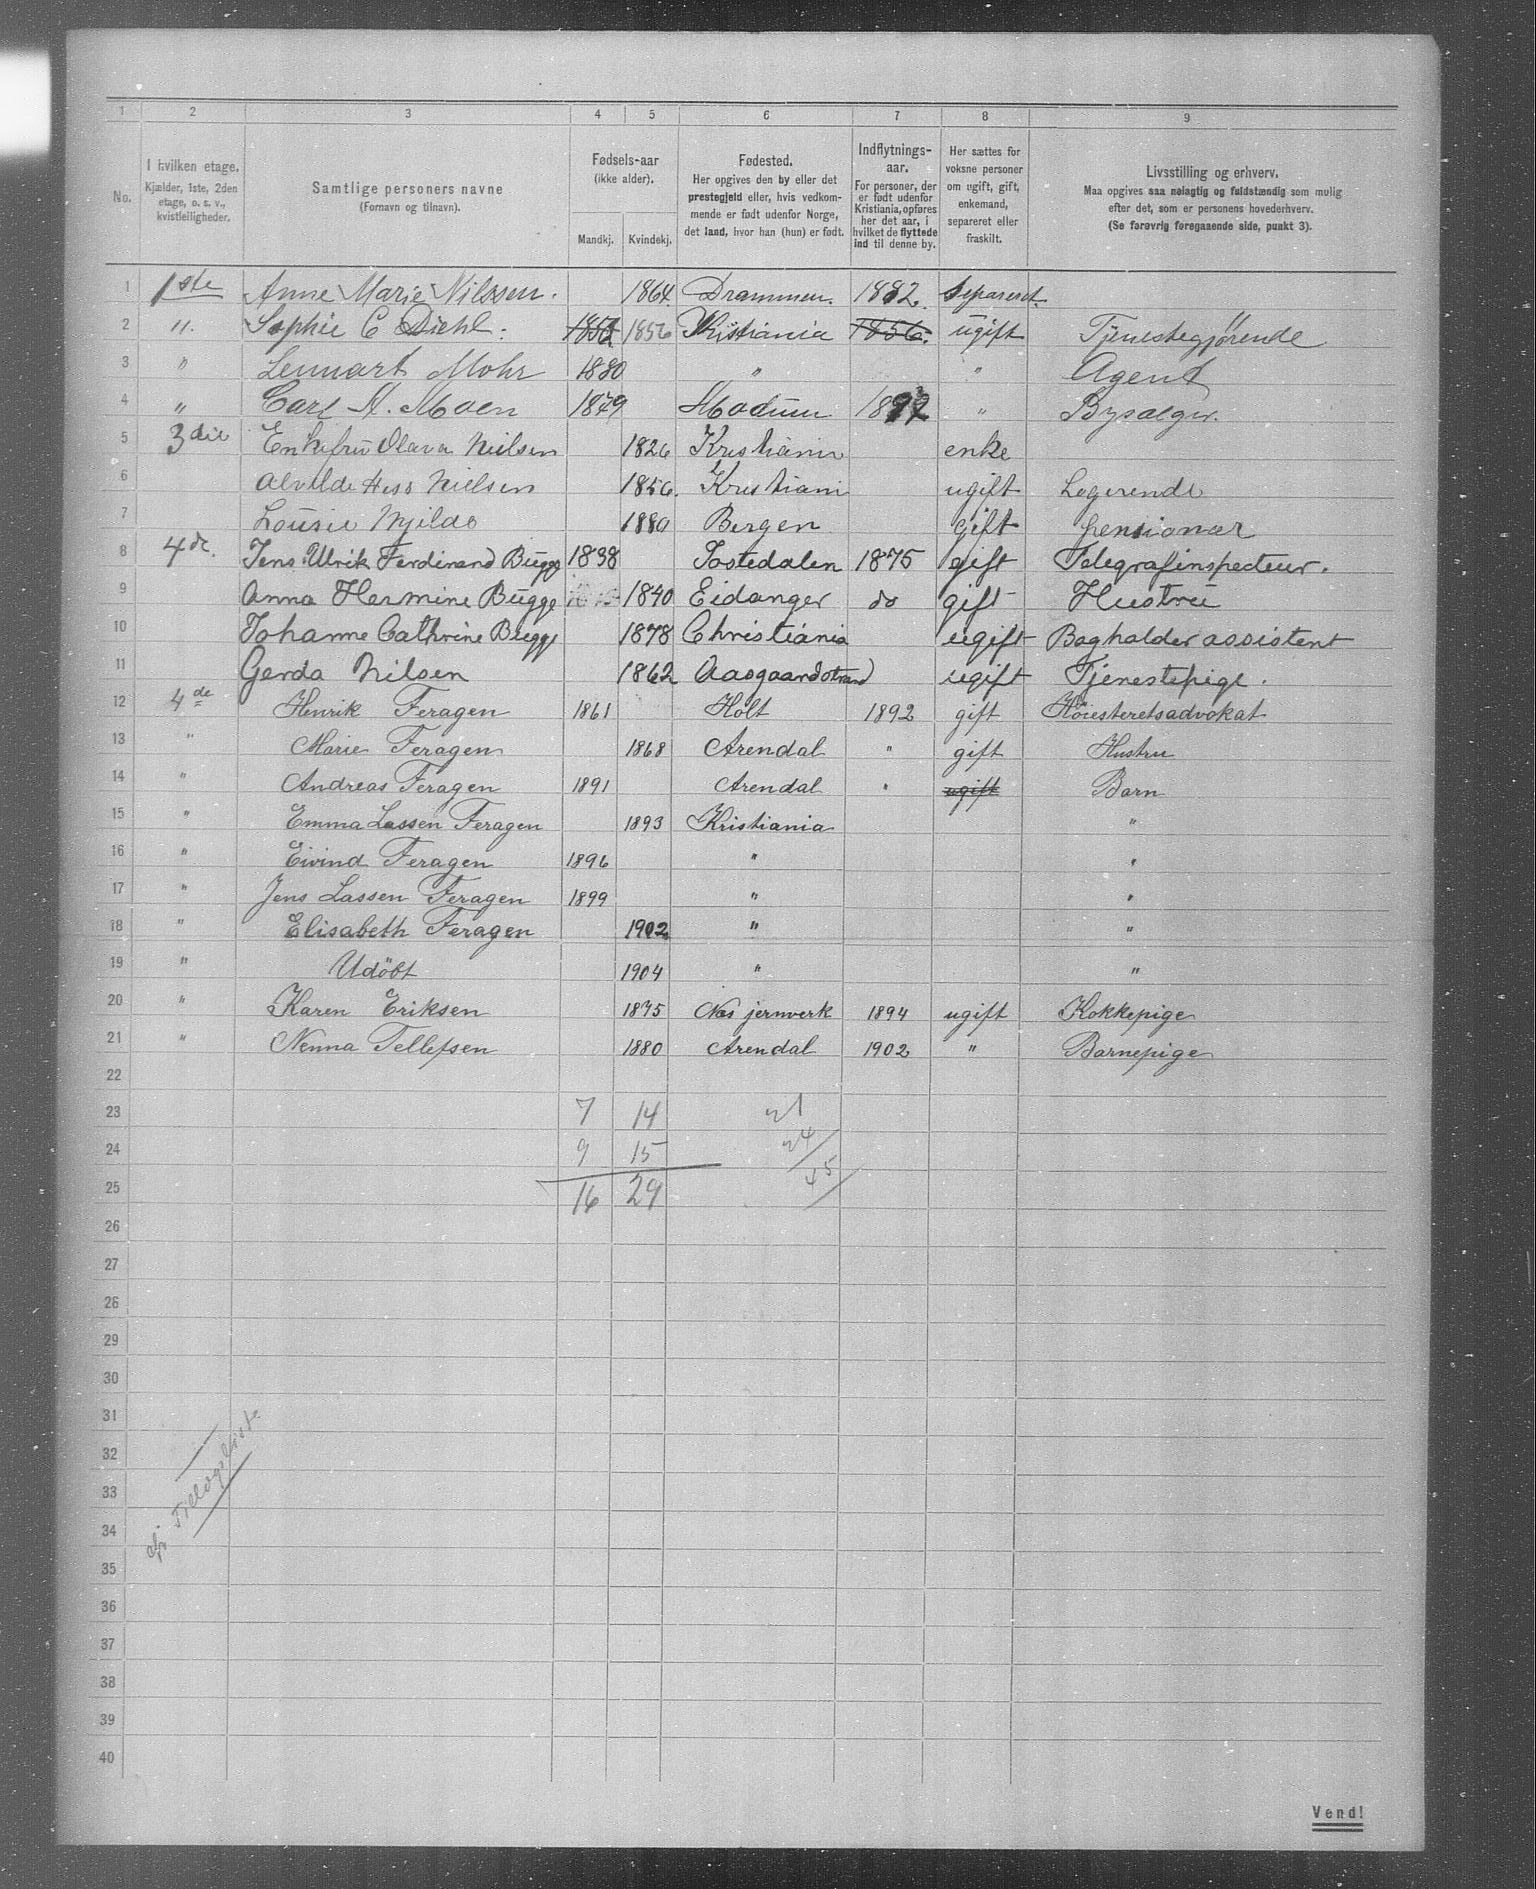 1 2 3 4 5 6 7 8 9
No.
I hvilken etage.
Kjælder, 1ste, 2den
etage, o. s. v.,
kvistleiligheder.
Samtlige personers navne
(Fornavn og tilnavn).
Fødsels-aar
(ikke alder).
Mandkj. Kvindekj.
Fødested.
Her opgives den by eller det
prestegjeld eller, hvis vedkom-
mende er født udenfor Norge,
det land, hvor han (hun) er født.
Indflytnings-
aar.
For personer, der
er født udenfor
Kristiania, opføres
her det aar, i
hvilket de flyttede
ind til denne by.
Her sættes for
voksne personer
om ugift, gift,
enkemand,
separeret eller
fraskilt.
Livsstilling og erhverv.
Maa opgives saa nøiagtig og fuldstændig som mulig
efter det, som er personens hovederhverv.
(Se forøvrig foregaaende side, punkt 3).
1 1ste Anne Marie Nilssen. 1864. Drammen. 1882. Separeret.
2 " Sophie C Diehl. 1856 1856 Kristiania 1856. ugift Tjenestegjørende
3 " Lennart Mohr 1880 " " Agent
4 " Carl A. Moen 1879 Modum 1892 " Bysælger.
5 3die Enkefru Olava Nielsen 1826 Kristiania enke
6 Alvilde Hess Nielsen 1856. Kristiani ugift Logerende
7 Lousie 1880 Bergen gift pensionær
8 4de. Jens Ulrik Ferdinand Bugge 1838 Jostedalen 1875 gift Telegrafinspecteur.
9 Anna Hermine Bugge 1840 Eidanger do gift Hustru
10 Johanne Cathrine Bugge 1878 Christiania ugift Bogholder assistent
11 Gerda Nilsen 1862 Aasgaardstrand ugift Tjenestepige.
12 4de Henrik Feragen 1861 Holt 1892 gift Høiesteretsadvokat
13 " Marie Feragen 1868 Arendal " gift Hustru
14 " Andreas Feragen 1891 Arendal " ugift Barn
15 " Emma Lassen Feragen 1893 Kristiania "
16 " Eivind Feragen 1896 " "
17 " Jens Lassen Feragen 1899 " "
18 " Elisabeth Feragen 1902 " "
19 " Udöbt 1904 " "
20 " Karen Eriksen 1875 Nes jernverk 1894 ugift Kokkepige
21 " Nenna Tellefsen 1880 Arendal 1902 " Barnepige
22
23 7 14 21
24 9 15 24
25 16 29 45
26
27
28
29
30
31
32
33
34
35
36
37
38
39
40
Vend!